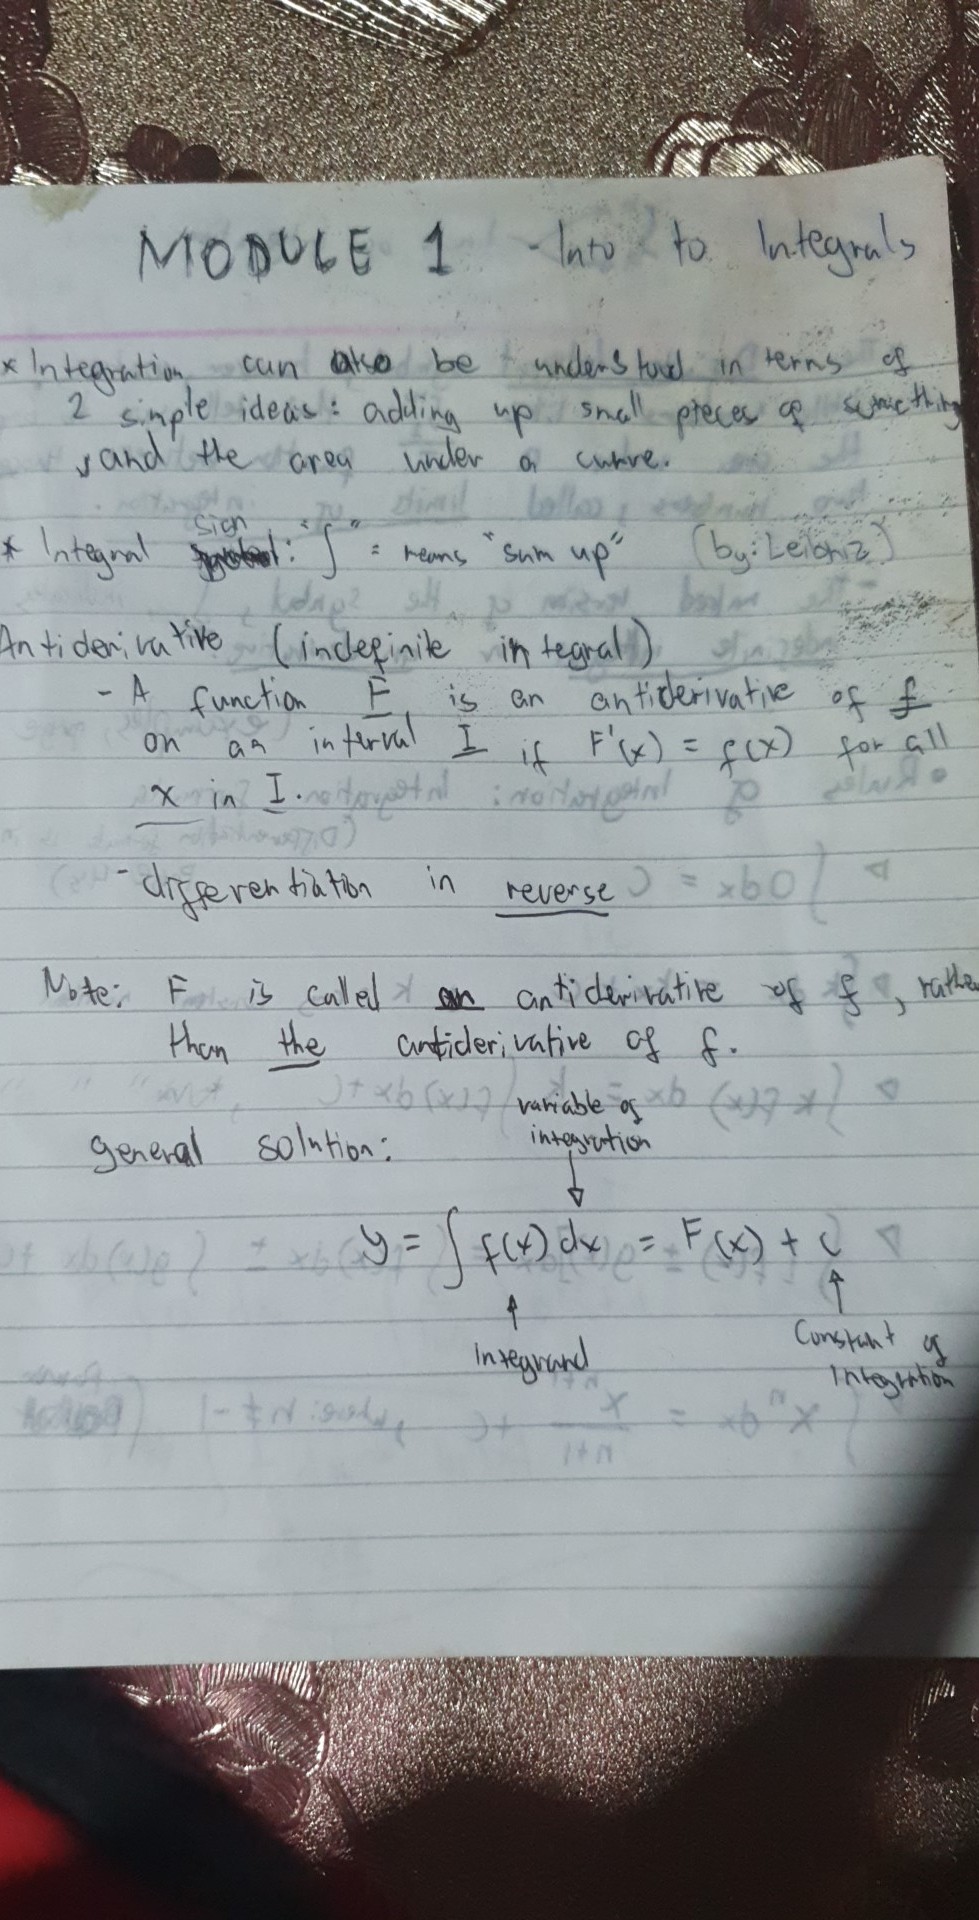 MODULE 1 - Into to Integrals
* Integration can also be understood in terms of
2 simple ideas: adding up small pieces of something
, and the area under a curve.
sign
* Integral : "∫" = means "sum up" (by: Leibniz)
Antiderivative (indefinite integral)
- A function F is an antiderivative of f
on an interval I if F'(x) = f(x) for all
x in I.
- differentiation in reverse
Note: F is called an antiderivative of f, rather
than the antiderivative of f.
variable of
integration
general solution:
y = ∫ f(x) dx = F(x) + C
integrand
Constant of
Integration